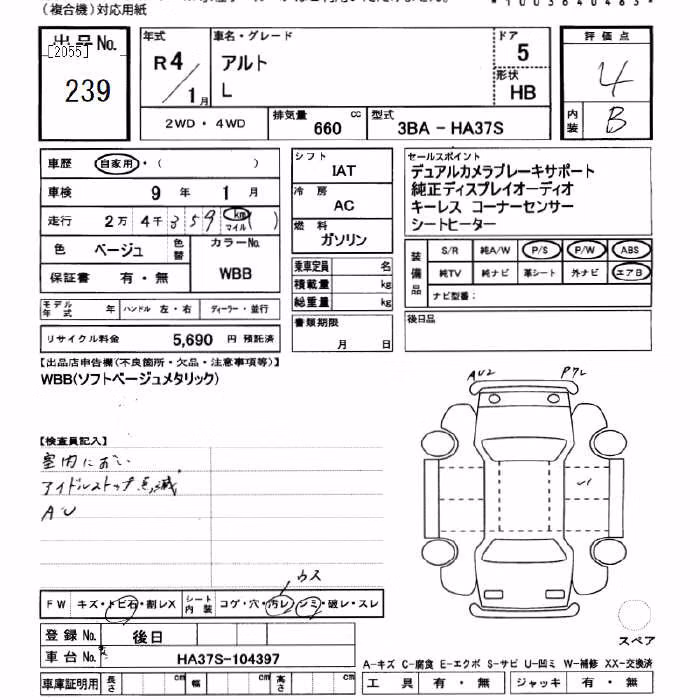 (複合機)対応用紙
*1003640483*
出品No.
[2055]
239
年式
R4/1月
車名・グレード
アルト
L
ドア
5
形状
HB
評価点
4
内装
B
2WD・4WD
排気量
660 cc
型式
3BA - HA37S
車歴 自家用・( )
車検 9年 1月
走行 2万 4千 359 km マイル ( )
色 ベージュ 色替
カラーNo.
WBB
保証書 有・無
シフト
IAT
冷房
AC
燃料
ガソリン
乗車定員 名
積載量 kg
総重量 kg
書類期限
月 日
セールスポイント
デュアルカメラブレーキサポート
純正ディスプレイオーディオ
キーレス コーナーセンサー
シートヒーター
装備品
S/R 純A/W P/S P/W ABS
純TV 純ナビ 革シート 外ナビ エアB
ナビ型番:
後日品
モデル年式 年 ハンドル 左・右 ディーラー・並行
リサイクル料金 5,690 円 預託済
【出品店申告欄(不良箇所・欠品・注意事項等)】
WBB(ソフトベージュメタリック)
【検査員記入】
室内におい
アイドルストップ点滅
AU
AU2
ウス
FW キズ・トビ石・割レX シート内装 コゲ・穴・汚レ・シミ・破レ・スレ
登録No. 後日
車台No. HA37S-104397
車庫証明用 長さ cm 幅 cm 高さ cm
スペア
A-キズ C-腐食 E-エクボ S-サビ U-凹ミ W-補修 XX-交換済
工具 有・無 ジャッキ 有・無